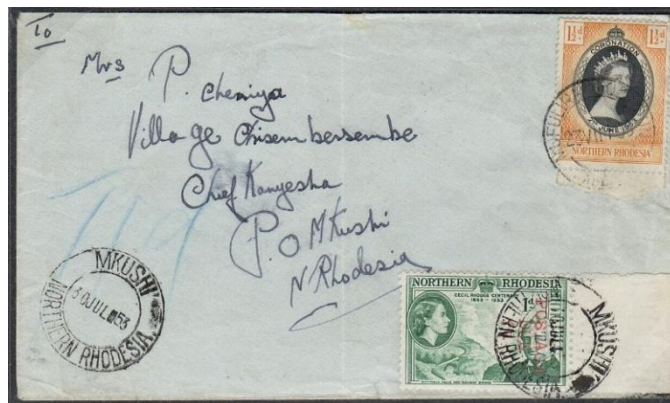 To
Mrs
P. Chemiya
Village Chisembersembe
Chief Kanyesha
P.O Mkushi
N Rhodesia
1½d. 1½d.
CORONATION
NORTHERN RHODESIA
MKUSHI
30 JUL 53
NORTHERN RHODESIA
NORTHERN RHODESIA
CECIL RHODES CENTENARY
1853 - 1953
1d
POSTAGE
MKUSHI